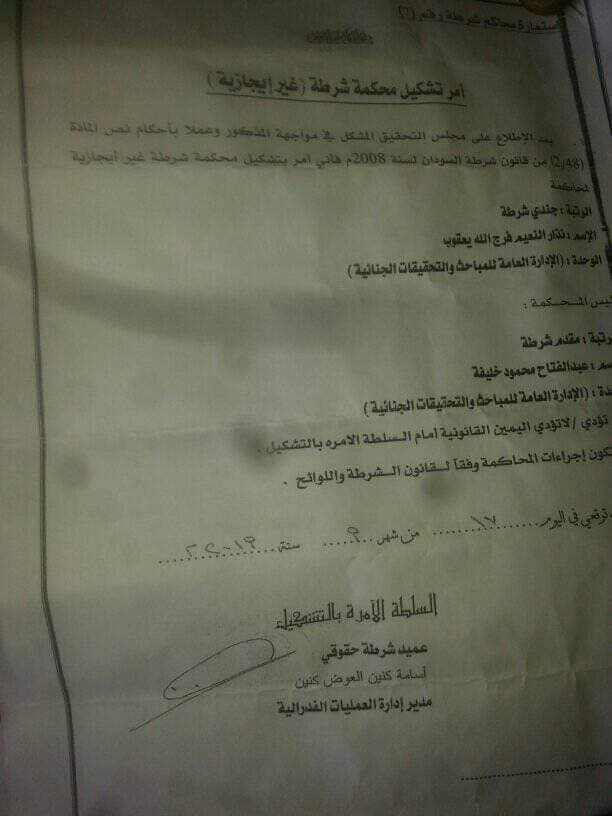 إستمارة محاكم شرطة رقم (٦)
أمر تشكيل محكمة شرطة (غير إيجازية)
بعد الإطلاع على مجلس التحقيق المشكل في مواجهة المذكور وعملا بأحكام نص المادة
(2/48) من قانون شرطة السودان لسنة 2008م فأني امر بتشكيل محكمة شرطة غير أيجازية
لمحاكمة
الرتبة : جندي شرطة
الإسم : نذار النعيم فرج الله يعقوب
الوحدة : (الإدارة العامة للمباحث والتحقيقات الجنائية)
يس المـحـكـمة :
رتبة : مقدم شرطة
سم : عبدالفتاح محمود خليفة
دة : (الإدارة العامة للمباحث والتحقيقات الجنائية)
تؤدي / لاتؤدي اليمين القانونية أمام السلطة الامره بالتشكيل .
كون إجراءات المحاكمة وفقاً لـقانون الـشرطة واللوائح .
توقعي في اليوم ....١٧.... من شهر ..٩.. سنة
السلطة الآمرة بالتشكيل
عميد شرطة حقوقي
أسامة كنين العوض كنين
مدير إدارة العمليات الفدرالية